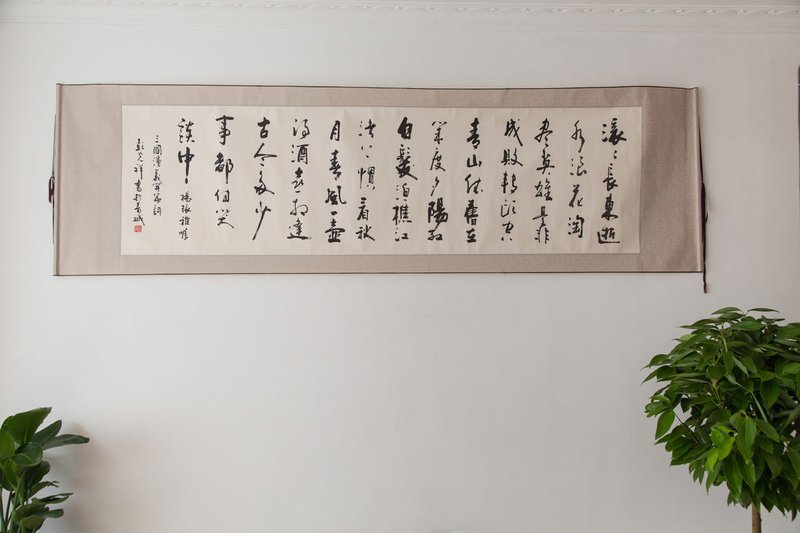 滚〻長東逝
水浪花淘
盡英雄是非
成敗轉頭空
青山依舊在
幾度夕陽紅
白髮漁樵江
渚上慣看秋
月春風一壺
濁酒喜相逢
古今多少
事都付笑
談中
三國演義
祥書於